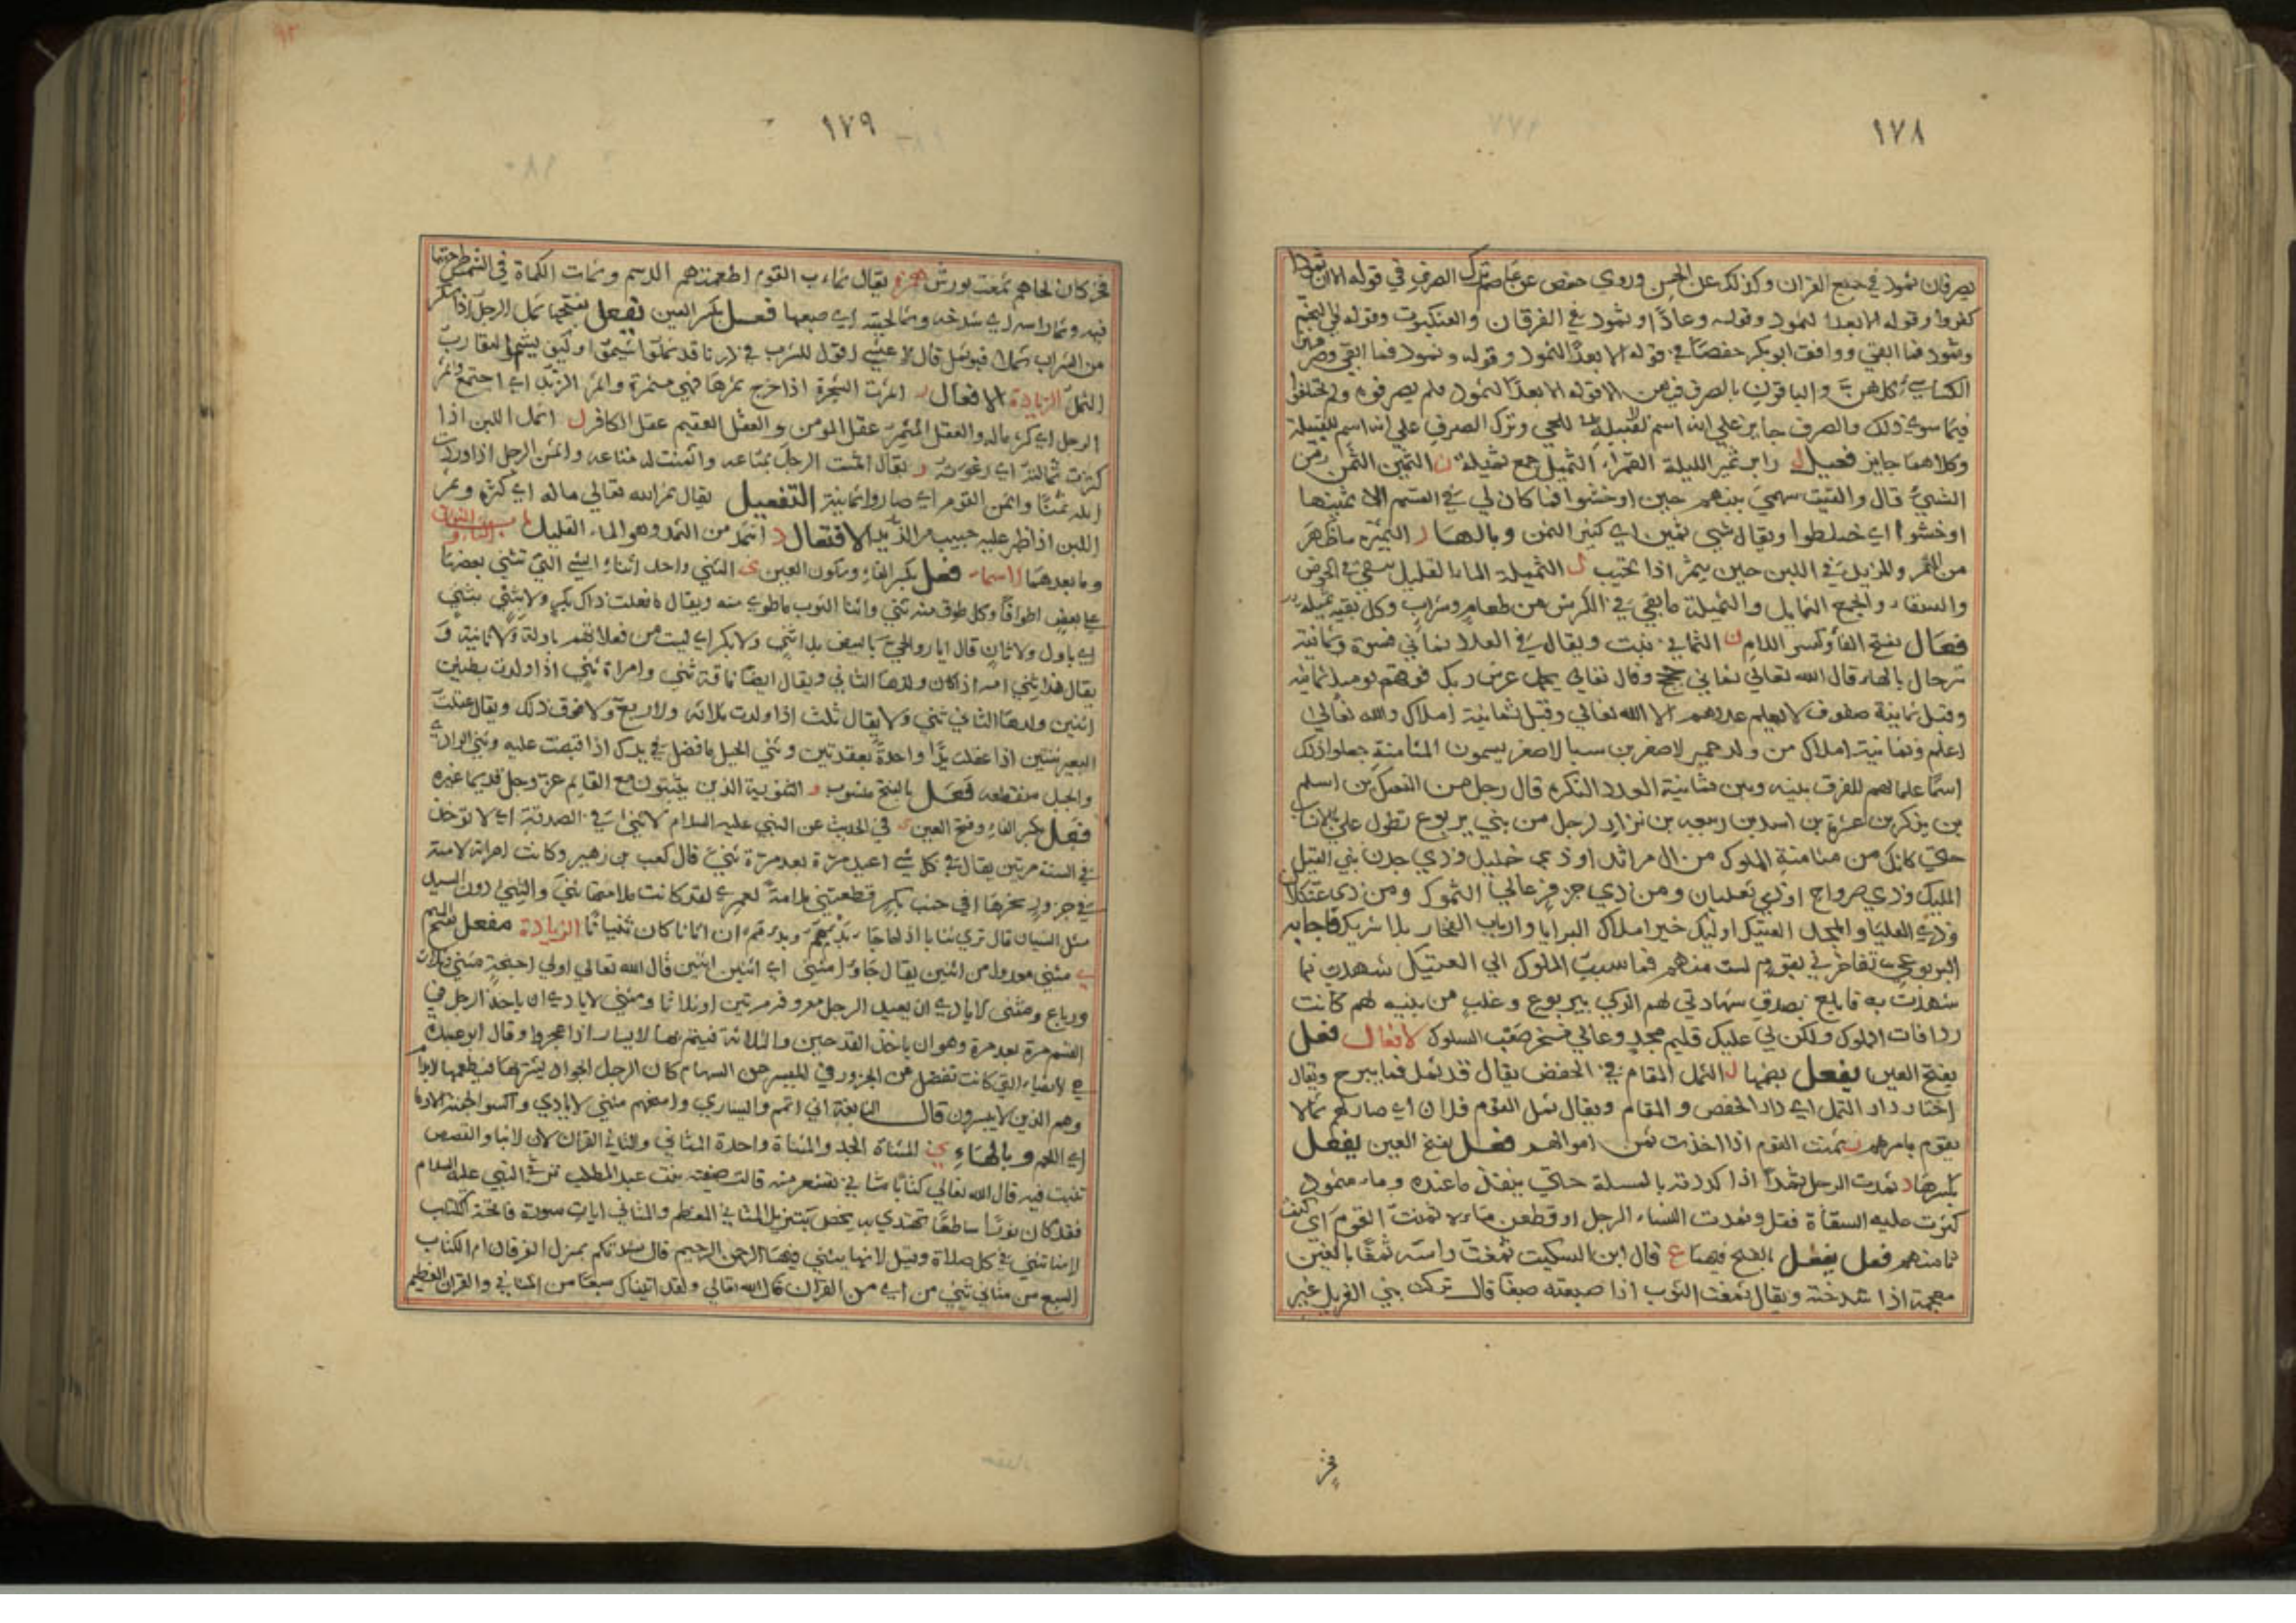 ١٧٨
يصرفان ثمود في جميع القران وكذلك عن الحسن وروي حفص عن عاصم ترك الصرف في قوله الا ان ثمودا
كفروا وقوله الا بعدا لثمود وقوله وعادًا وثمود في الفرقان والعنكبوت وقوله في النجم
وثمود فما ابقي ووافق ابو بكر حفصًا في قوله الا بعدًا لثمود وقوله وثمود فما ابقي وصرف
الكسايي كلهن والباقون بالصرف فيهن الا قوله الا بعدًا لثمود فلم يصرفوه ولم يختلفوا
فيما سوي ذلك والصرف جايز علي انه اسم للحي وترك الصرف علي انه اسم للقبيلة
وكلاهما جايز فعيل ر ابن ثمير الليلة القمراء ل الثميل جمع ثميلة ن الثمين الثمن
الشيء قال والقيت سهمي بينهم حين اوخشوا فما كان لي في القسم الا ثمينها
اوخشوا اي خلطوا ويقال شيء ثمين اي كثير الثمن وبالهاء ر الثميرة ما ظهر
من الثمر والزبد في اللبن حين يثمر اذا ل الثميلة الماء القليل يبقي في الحوض
والسقاء والجمع الثمايل والثميلة ما بقي في الكرش من طعام وشراب وكل بقية ثميلة
فعال بفتح الفا وكسر اللام ن الثماني نبت ويقال في العدد ثماني نسوة وثمانية
رجال بالهاء قال الله تعالي ثماني حجج وقال تعالي يحمل عرش ربك فوقهم يوميذ ثمانية
وقيل ثمانية صفوف لا يعلم عددهم الا الله تعالي وقيل ثمانية املاك والله تعالي
اعلم وثمانية املاك من ولد حمير الاصغر بن سبا الاصغر يسمون المثامنة جعلوا ذلك
اسمًا علما لهم للفرق بينه وبين ثمانية العدد النكرة قال رجل من
بن يذكر بن عنزة بن اسد بن ربيعة بن نزار لرجل من بني يربوع تطول علي
حتي كانك من مثامنة الملوك من ال مراثد او ذي خليل وذي جدن بني القيل
المليك وذي صرواح او ذي ثعلبان ومن ذي حزفر عالي السموك ومن ذي عثكلان
وذي العليا والمجد العتيك اوليك خير املاك البرايا وارباب الفخار بلا شريك فاجابه
اليربوعي تفاخرني بقوم لست منهم فما سبب الملوك الي العتيك شهدت بما
شهدت به فابلغ بصدق شهادتي لهم وغلب من بنيه لهم كانت
ردافات الملوك ولكن لي عليك قديم مجد وعالي مفخر صعب السلوك الافعال فعل
بفتح العين يفعل بضمها ل الثمل المقام في الخفض يقال قد ثمل فما يبرح ويقال
اختار دار الثمل اي دار الخفض والمقام ويقال ثمل القوم فلان اي صار لهم ثمالا
يقوم بامرهم ن ثمنت القوم اذا اخذت ثمن اموالهم فعل بفتح العين يفعل
بكسرها د ثمدت الرجل ثمدًا اذا كددته بالمسلة حتي ينفذ ما عنده وماء مثمود
كثرت عليه السقاة فقل وثمدت النساء الرجل اذا قطعن ماءه ن ثمنت القوم اي كنت
ثامنهم فعل يفعل بالفتح فيهما غ قال ابن السكيت ثمغت راسه ثمغًا بالغين
معجمة اذا شدخته ويقال ثمغت الثوب اذا صبغته صبغًا قال تركت بني الغزيل غير
فخر
١٧٩
فخر كان لحاهم ثمغت بورس همزة يقال ثماءت القوم اطعمتهم الدسم وثمات الكماة في السمن طرحتها
فيه وثما راسه اي شدخه وثما لحيته اي صبغها فعل بكسر العين يفعل بفتحها ثمل الرجل اذا سكر
من الشراب ثملًا فهو ثمل قال الاعشي اقول للشرب في درنا قد ثملوا شيموا وكيف يشيم الشارب
الثمل الزيادة الافعال ر اثمرت الشجرة اذا خرج ثمرها فهي مثمرة واثمر الزبد اي اجتمع واثمر
الرجل اي كثر ماله والعقل المثمر عقل المومن والعقل العقيم عقل الكافر ل اثمل اللبن اذا
كثرت ثمالته اي رغوته ن يقال اثمنت الرجل بمتاعه واثمنت له متاعه واثمن الرجل اذا وردت
ابله ثمنًا واثمن القوم اي صاروا ثمانية التفعيل يقال ثمر الله تعالي ماله اي كثره وثمر
اللبن اذا ظهر عليه حبيب من الزبد الافتعال د اثمد من الثمد وهو الماء القليل باب الثاء والنون
وما بعدهما الاسماء فعل بكسر الفاء وسكون العين ي الثني واحد اثناء الشي التي تثني بعضها
علي بعض اطواقًا وكل طوق منه ثني واثنا الثوب ما طوي منه ويقال ما فعلت ذاك بكر ولا بثني
اي باول ولا ثان
يقال هذا ثني امه اذا كان ولدها الثاني ويقال ايضا ناقة ثني وامراة ثني اذا ولدت بطنين
اثنين وولدها الثاني ثني ولا يقال ثلث اذا ولدت ثلاثة ولا ربع ولا فوق ذلك ويقال عقلت
البعير بثنيين اذا عقلت يدًا واحدة بعقدتين وثني الحبل ما فضل في يدك اذا قبضت عليه وثني الوادي
والجبل منقطعه فعل بالفتح منسوب و الثنوية الذين يثبتون مع القديم عز وجل قديما غيره
فعل بكسر الفاء وفتح العين ي في الحديث عن النبي عليه السلام لا ثني في الصدقة اي لا توخذ
في السنة مرتين يقال في كل شي اعيد مرة بعد مرة ثني قال كعب بن زهير وكانت امراته لامته
في جزور نحرها افي جنب بكر قطعتني ملامة لعمري لقد كانت ملامتها ثني والثني دون السيد
مثل الثنيان قال تري ثنانا اذا ما جاء بدءهم وبدءهم ان اتانا كان ثنيانا الزيادة مفعل بفتح الميم
ي مثني معدول من اثنين يقال جاوا مثني اي اثنين اثنين قال الله تعالي اولي اجنحة مثني وثلاث
ورباع ومثني الايادي ان يعيد الرجل معروفه مرتين او ثلاثا ومثني الايادي ان ياخذ الرجل في
القسم مرة بعد مرة وهو ان ياخذ القدحين والثلاثة فيتم بها الايسار اذا عجزوا وقال ابو عبيدة
هي الانصباء التي كانت تفضل من الجزور في الميسر من السهام كان الرجل الجواد يشتريها فيطعمها الابرام
وهم الذين لا ييسرون قال النابغة اني اتمم ايساري وامنحهم مثني الايادي واكسو الجفنة الادما
اي اللحم وبالهاء ي المثناة الحبل والمثناة واحدة المثاني والمثاني القران لان الانبا والقصص
تثنيت فيه قال الله تعالي كتابًا متشابها مثاني تقشعر منه قالت صفية بنت عبد المطلب ترثي النبي عليه السلام
فقد كان نورًا ساطعًا تهتدي به يخص بتنزيل المثاني المعظم والمثاني ايات سورة فاتحة الكتاب
لانها تثني في كل صلاة وقيل لانها يثني فيها الرحمن الرحيم قال نشدتكم بمنزل الفرقان ام الكتاب
السبع من مثاني ثنين من اي من القران قال الله تعالي ولقد اتيناك سبعًا من المثاني والقران العظيم